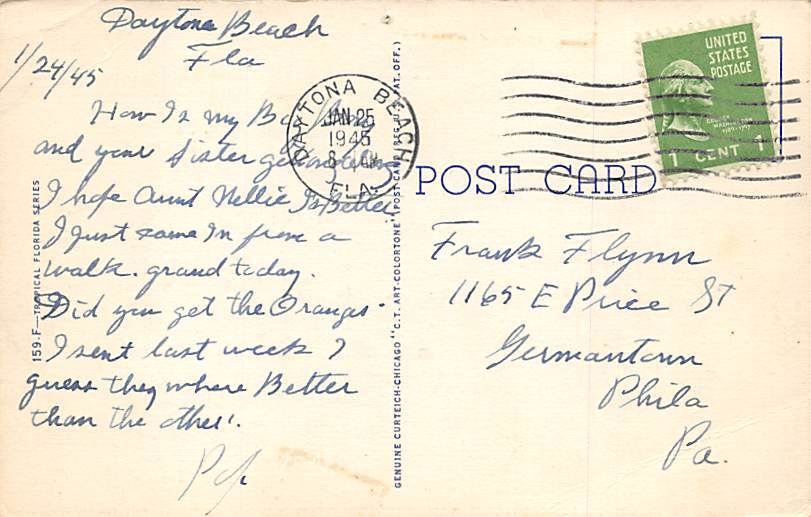 Daytona Beach
Fla
1/24/45
How Is my Boy
and your Sister getting along
I hope Aunt Nellie Is Better
I Just came In from a
walk. grand today.
Did you get the Oranges
I sent last week I
guess they where Better
than the other.
Pop
159-F—TROPICAL FLORIDA SERIES
GENUINE CURTEICH-CHICAGO "C.T. ART-COLORTONE" POST CARD (REG. U.S. PAT. OFF.)
DAYTONA BEACH
JAN 25
1945
8 AM
FLA.
UNITED
STATES
POSTAGE
1 CENT 1
POST CARD
Frank Flynn
1165 E Price St
Germantown
Phila
Pa.